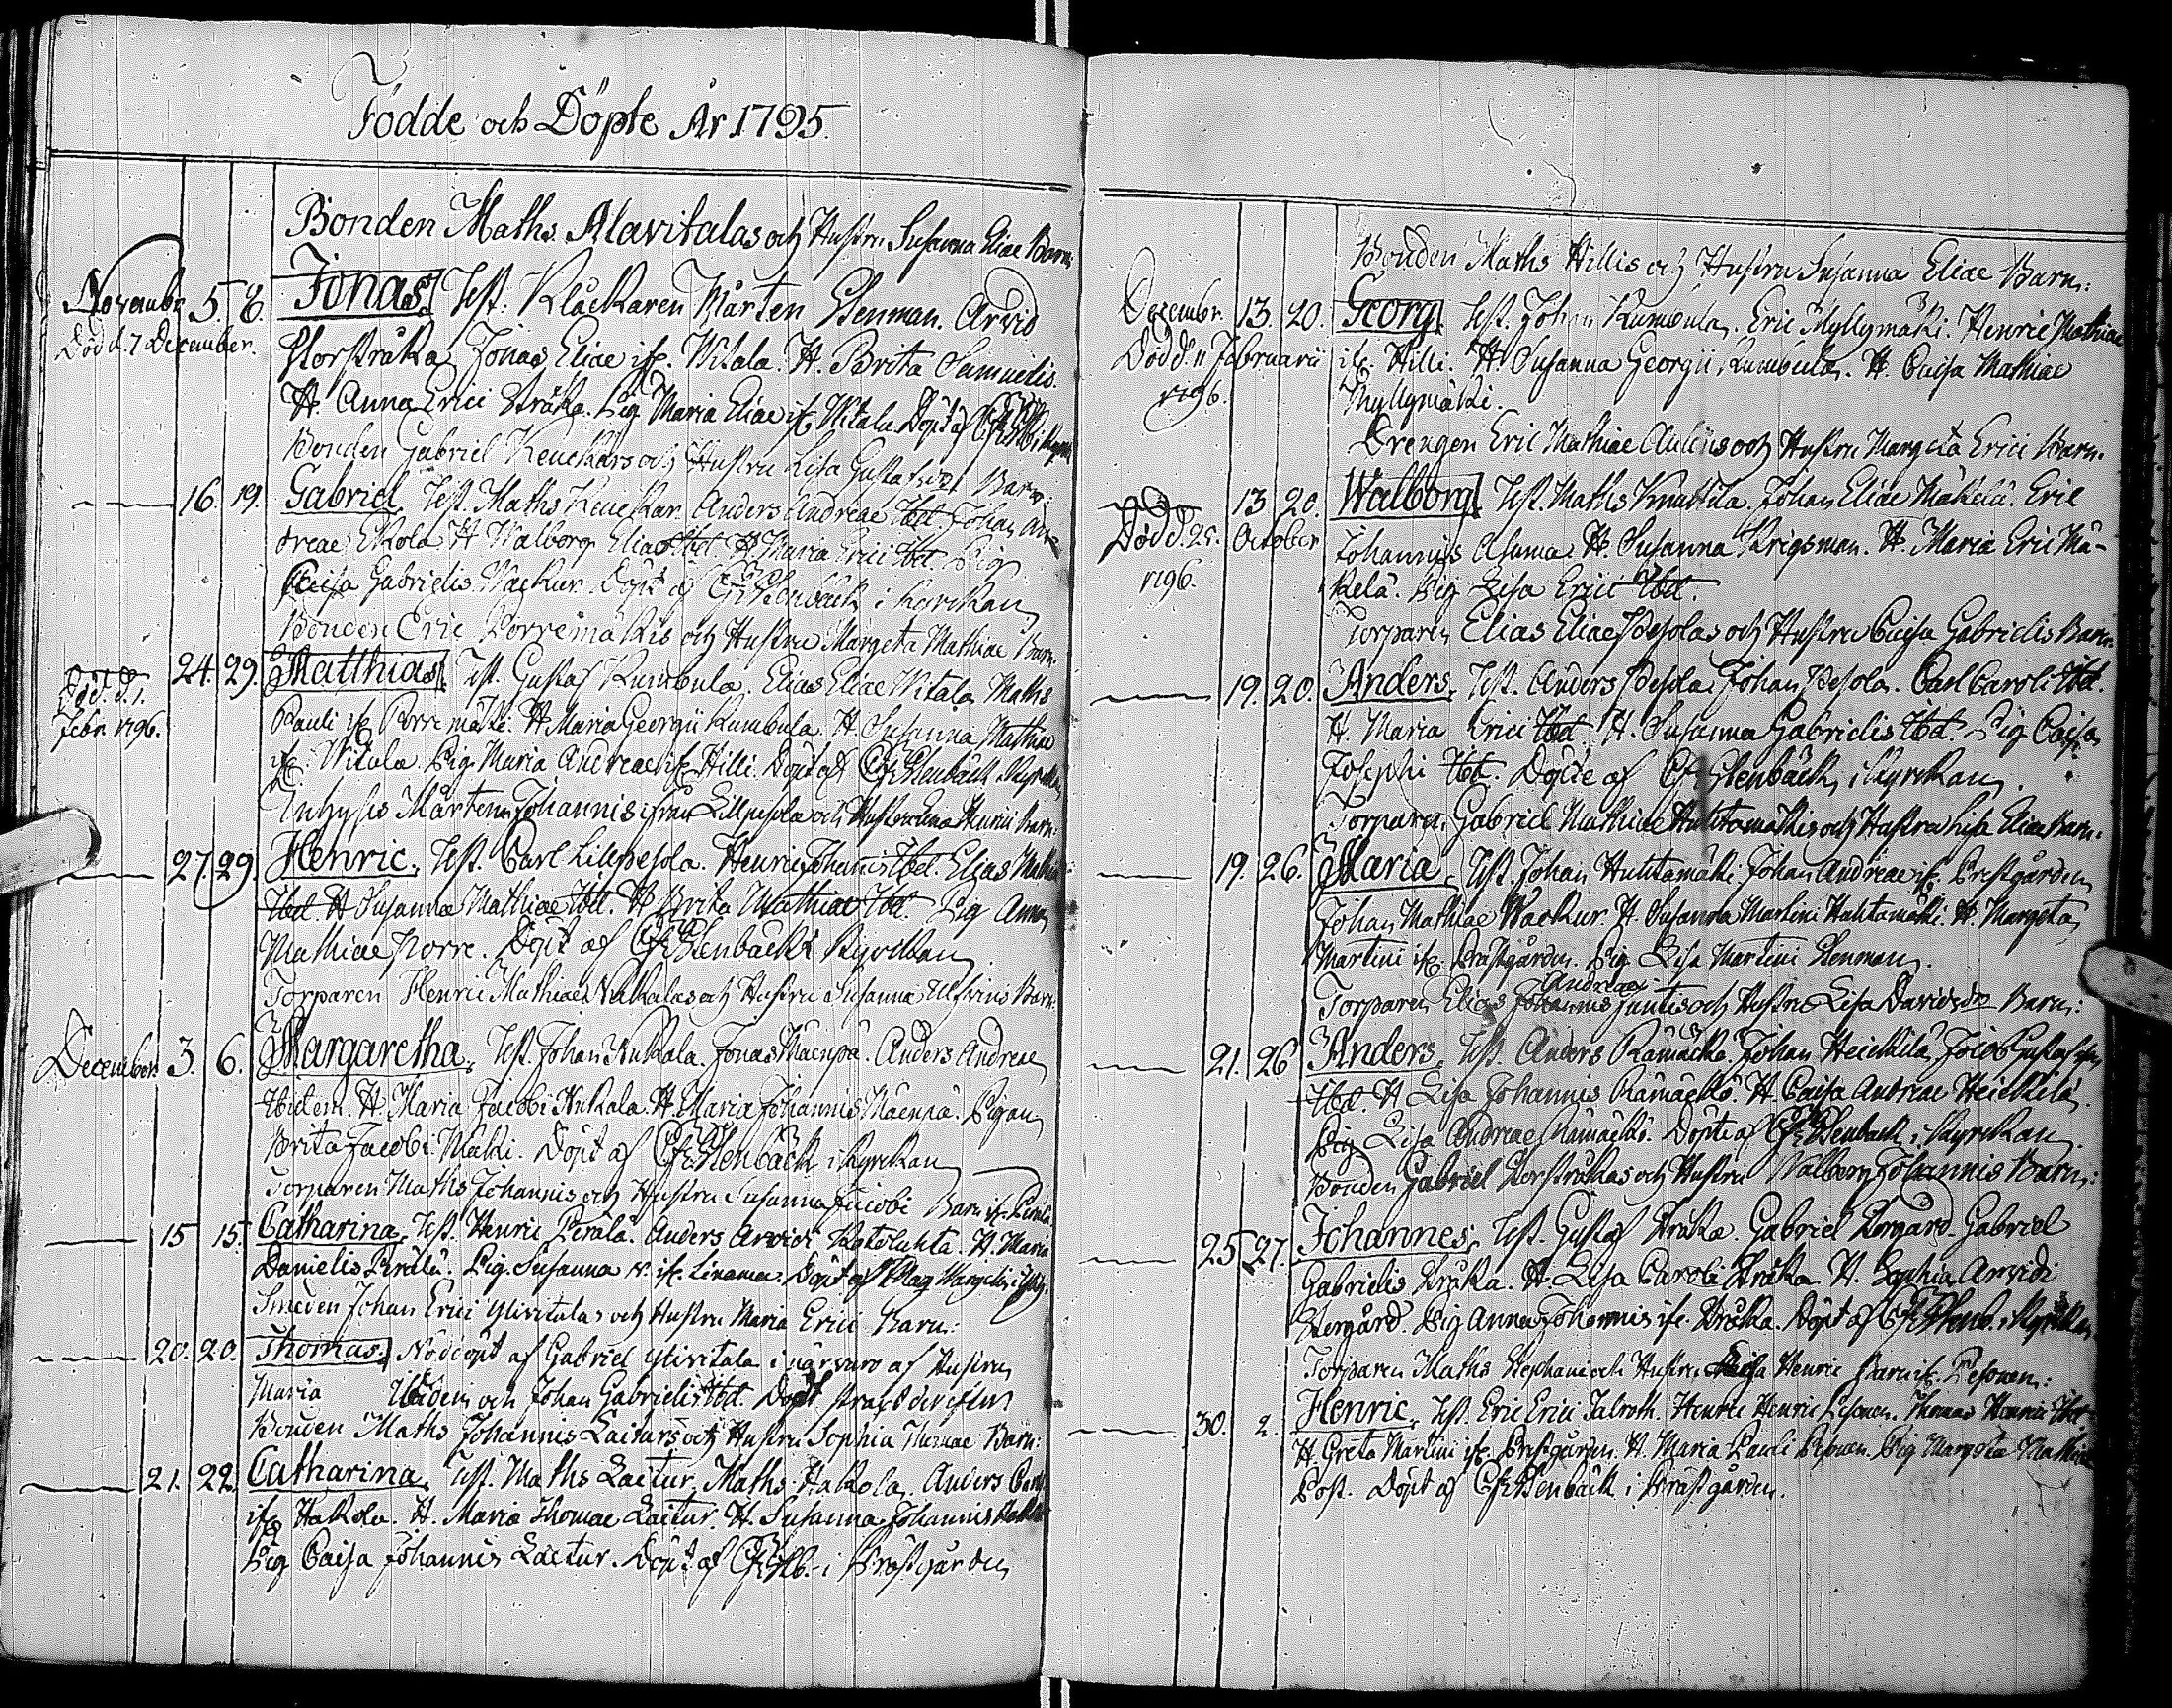 Födde och Döpte År 1795.
Bonden Maths Alavitalas och Hustru Susanna Eliae Barn,
Novembr. 5. 8. Jonas. Test. Klåckaren Mårten Stenman. Arvid
Död d. 7 December. Storstråka Jonas Eliae ifr. Witala. H. Brita Samuelis.
H. Anna Erici Stråka. Pig. Maria Eliae ifr. Witala Döpt af
Bonden Gabriel Keuckars och Hustru Lisa Gustafsdr Barn:
16. 19. Gabriel. Test. Maths Keuckar. Anders Andreae Ibd. Johan An-
dreae Ekola. H. Walborg Eliae Ibd. H. Maria Erici Ibd. Pig
Caisa Gabrielis Wackur. Döpt af C. F. Stenbäck i kyrckan
Bonden Eric Porremäkis och Hustru Margeta Mathiae Barn.
24. 29. Matthias. Test. Gustaf Kumbula. Elias Eliae Witala Maths
Död. d. 1. Febr. 1796. Pauli ifr. Porremäki. H. Maria Georgii Kumbula. H. Susanna Mathiae
ifr. Witala Pig. Maria Andreae ifr. Hilli. Döpt af C. F. Stenbäck Kyrckan
Inhyses Mårten Johannis ifrån Lillpesola och Hustru Henrici Barn:
27. 29. Henric. Test. Carl Lillpesola. Henric Johannis Ibd. Elias Mathiae
Ibd. H. Susanna Mathiae Ibd. H. Brita Mathiae Ibd. Pig Anna
Mathiae Porre. Döpt af C. F. Stenbäck i Kyrckan
Torparen Henric Mathiae Nukalas och Hustru Susanna Barn:
December. 3. 6. Margaretha. Test. Johan Nukala. Jonas Mäenpä. Anders Andreae
Ibidem. H. Maria Jacobi Nukala. H. Maria Johannis Mäenpä. Pigan
Brita Jacobi Mäki. Döpt af C. F. Stenbäck i kyrckan
Torparen Maths Johannis och Hustru Susanna Jacobi Barn ifr. Perälä.
15 15. Catharina. Test. Henric Perälä. Anders Arvidi Katolukta. H. Maria
Danielis Perälä. Pig. Susanna N. ifr. Linama. Döpt af Mag. Wargelin
Smeden Johan Erici Ylivitalas och Hustru Maria Erici Barn:
20. 20. Thomas. Nöddöpt af Gabriel Ylivitala i närvaro af Hustrun
Maria Ibidem och Johan Gabrielis Ibd. Dog strax derefter
Bonden Maths Johannis Laiturs och Hustru Sophia Thomae Barn:
21. 22. Catharina. Test. Maths Laitur. Maths Hakola. Anders
ifr. Hakola. H. Maria Thomae Laitur. H. Susanna Johannis
Pig Caisa Johannis Laitur. Döpt af C. F. Stb. i Prästgården
Bonden Maths Hillis och Hustru Susanna Eliae Barn:
Decembr. 13. 20. Georg. Test. Johan Kumbula. Eric Myllymäki. Henric Mathiae
Död d. 11 Februarii ifr. Hilli. H. Susanna Georgii Kumbula. H. Caisa Mathiae
1796. Myllymäki.
Drengen Eric Mathiae och Hustru Margeta Erici Barn.
13 20. Walborg. Test. Maths Knuttila. Johan Eliae Mäkelä. Eric
Död d. 25. October Johannis Asuma. H. Susanna Krigsman. H. Maria Eric Mä-
1796. kelä. Pig Lisa Erici Ibd.
Torparen Elias Eliae Pesolas och Hustru Caisa Gabrielis Barn.
19. 20. Anders. Test. Anders Pesola. Johan Pesola. Carl Caroli Ibd.
H. Maria Erici Ibd. H. Susanna Gabrielis Ibd. Pig Caisa
Josephi Ibd. Döpte af C. F. Stenbäck i kyrckan.
Torparen Gabriel Mathiae Huhtamäkis och Hustru Lisa Eliae Barn:
19. 26. Maria. Test. Johan Huhtamäki. Johan Andreae ifr. Prestgården
Johan Mathiae Wackur. H. Susanna Martini Huhtamäki. H. Margeta
Martini ifr. Prästgården. Pig. Lisa Martini Stenman.
Andreae
Torparen Elias Johannis Juntis och Hustru Lisa Davidsdr Barn:
21. 26 Anders. Test. Anders Rämäckö. Johan Heickilä. Jacob
Ibd. H. Lisa Johannis Rämäckö. H. Caisa Andreae Heickilä.
Pig Lisa Andreae Rämäckö. Döpte af C. F. Stenbäck i kyrckan.
Bonden Gabriel Storstråkas och Hustru Walborg Johannis Barn:
25 27. Johannes. Test. Gustaf Stråka. Gabriel Storgård. Gabriel
Gabrielis Stråka. H. Lisa Caroli Stråka. H. Sophia Arvidi
Storgård. Pig Anna Johannis ifr. Stråka. Döpt af C. F. Stenb. i Kyrckan
Torparen Maths Stephani och Hustru Caisa Henric Barn ifr. Pesonen:
30. 2. Henric. Test. Eric Erici Jalroth. Henric Henric Pesonen. Thomas Henric Ibd
H. Greta Martini ifr. Prestgården. H. Maria Pauli Pesonen. Pig Margeta Mathiae
Post. Döpt af C. F. Stenbäck i Prästgården.